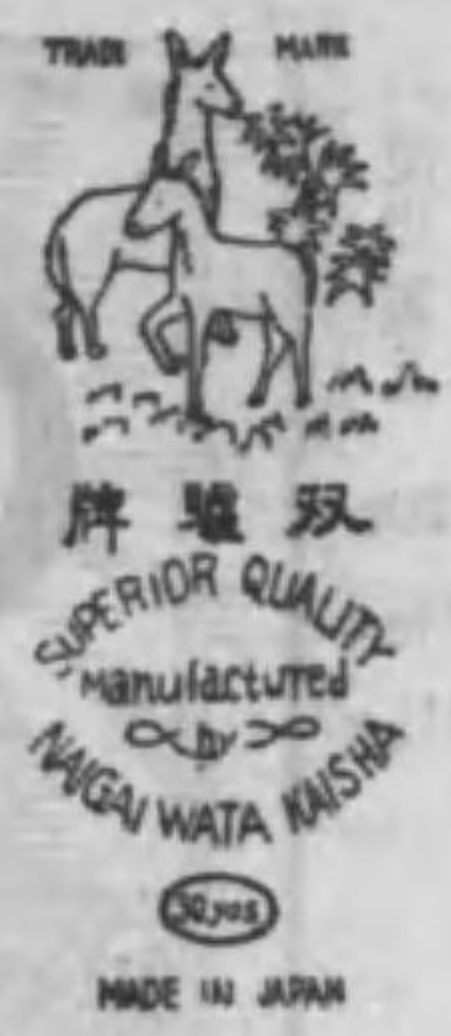 TRADE MARK
牌驢双
SUPERIOR QUALITY
Manufactured
by
NAIGAI WATA KAISHA
30yds
MADE IN JAPAN